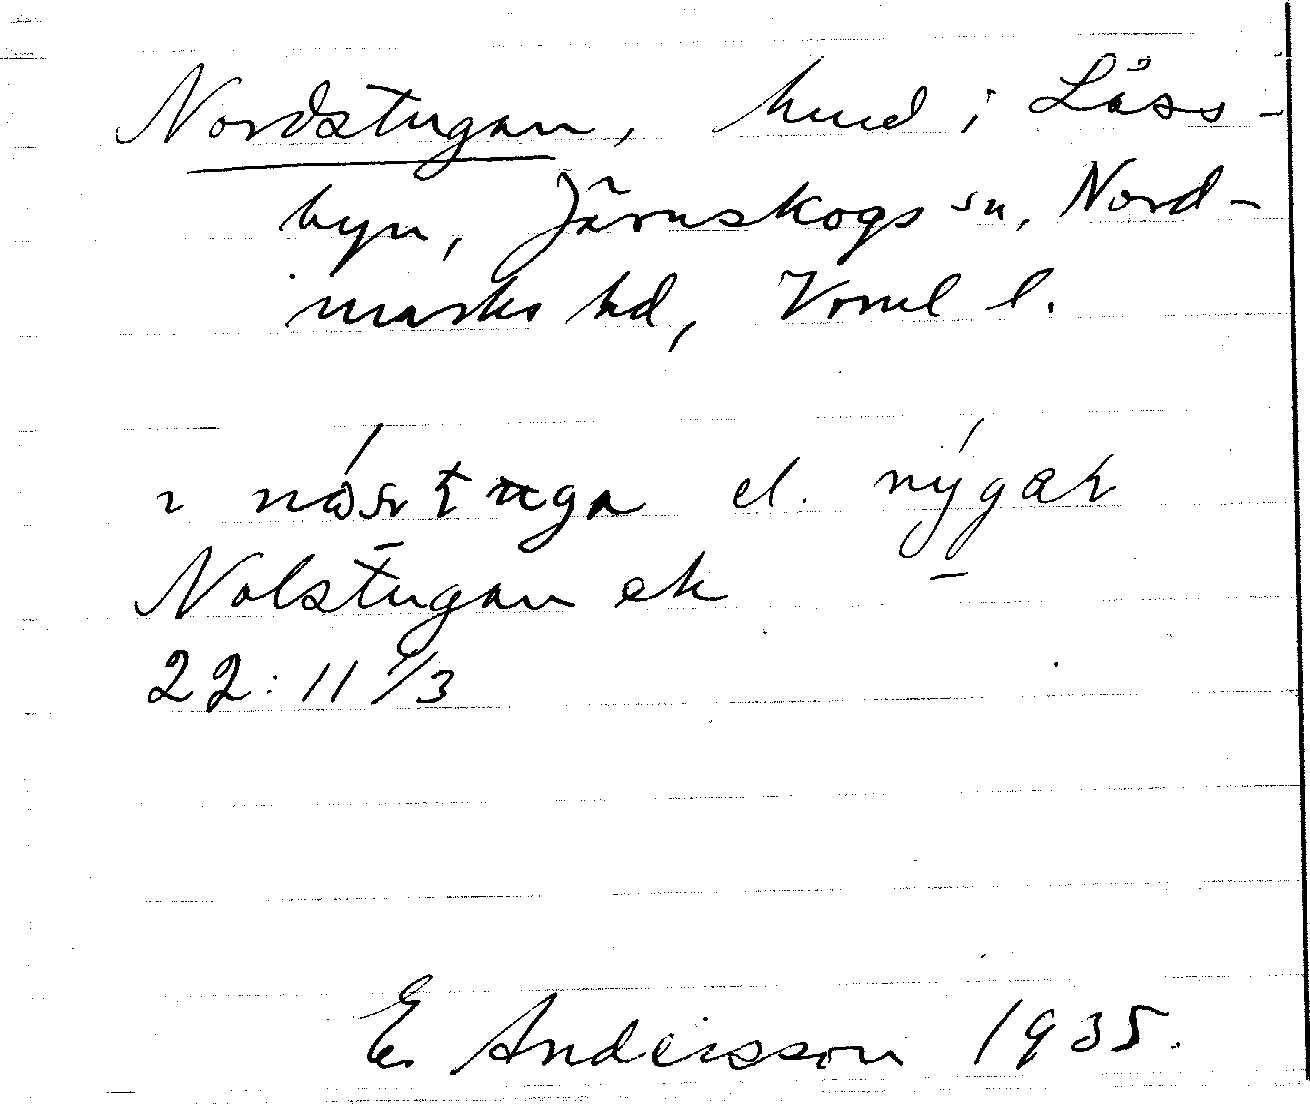 Nordstugan, hmd i Låss-
byn, Järnskogs sn, Nord-
marks hd, Vrml l.
ı nǿstuga el. nýgał
Nolstugan ek
22: 11 1/3
E. Andersson 1935.